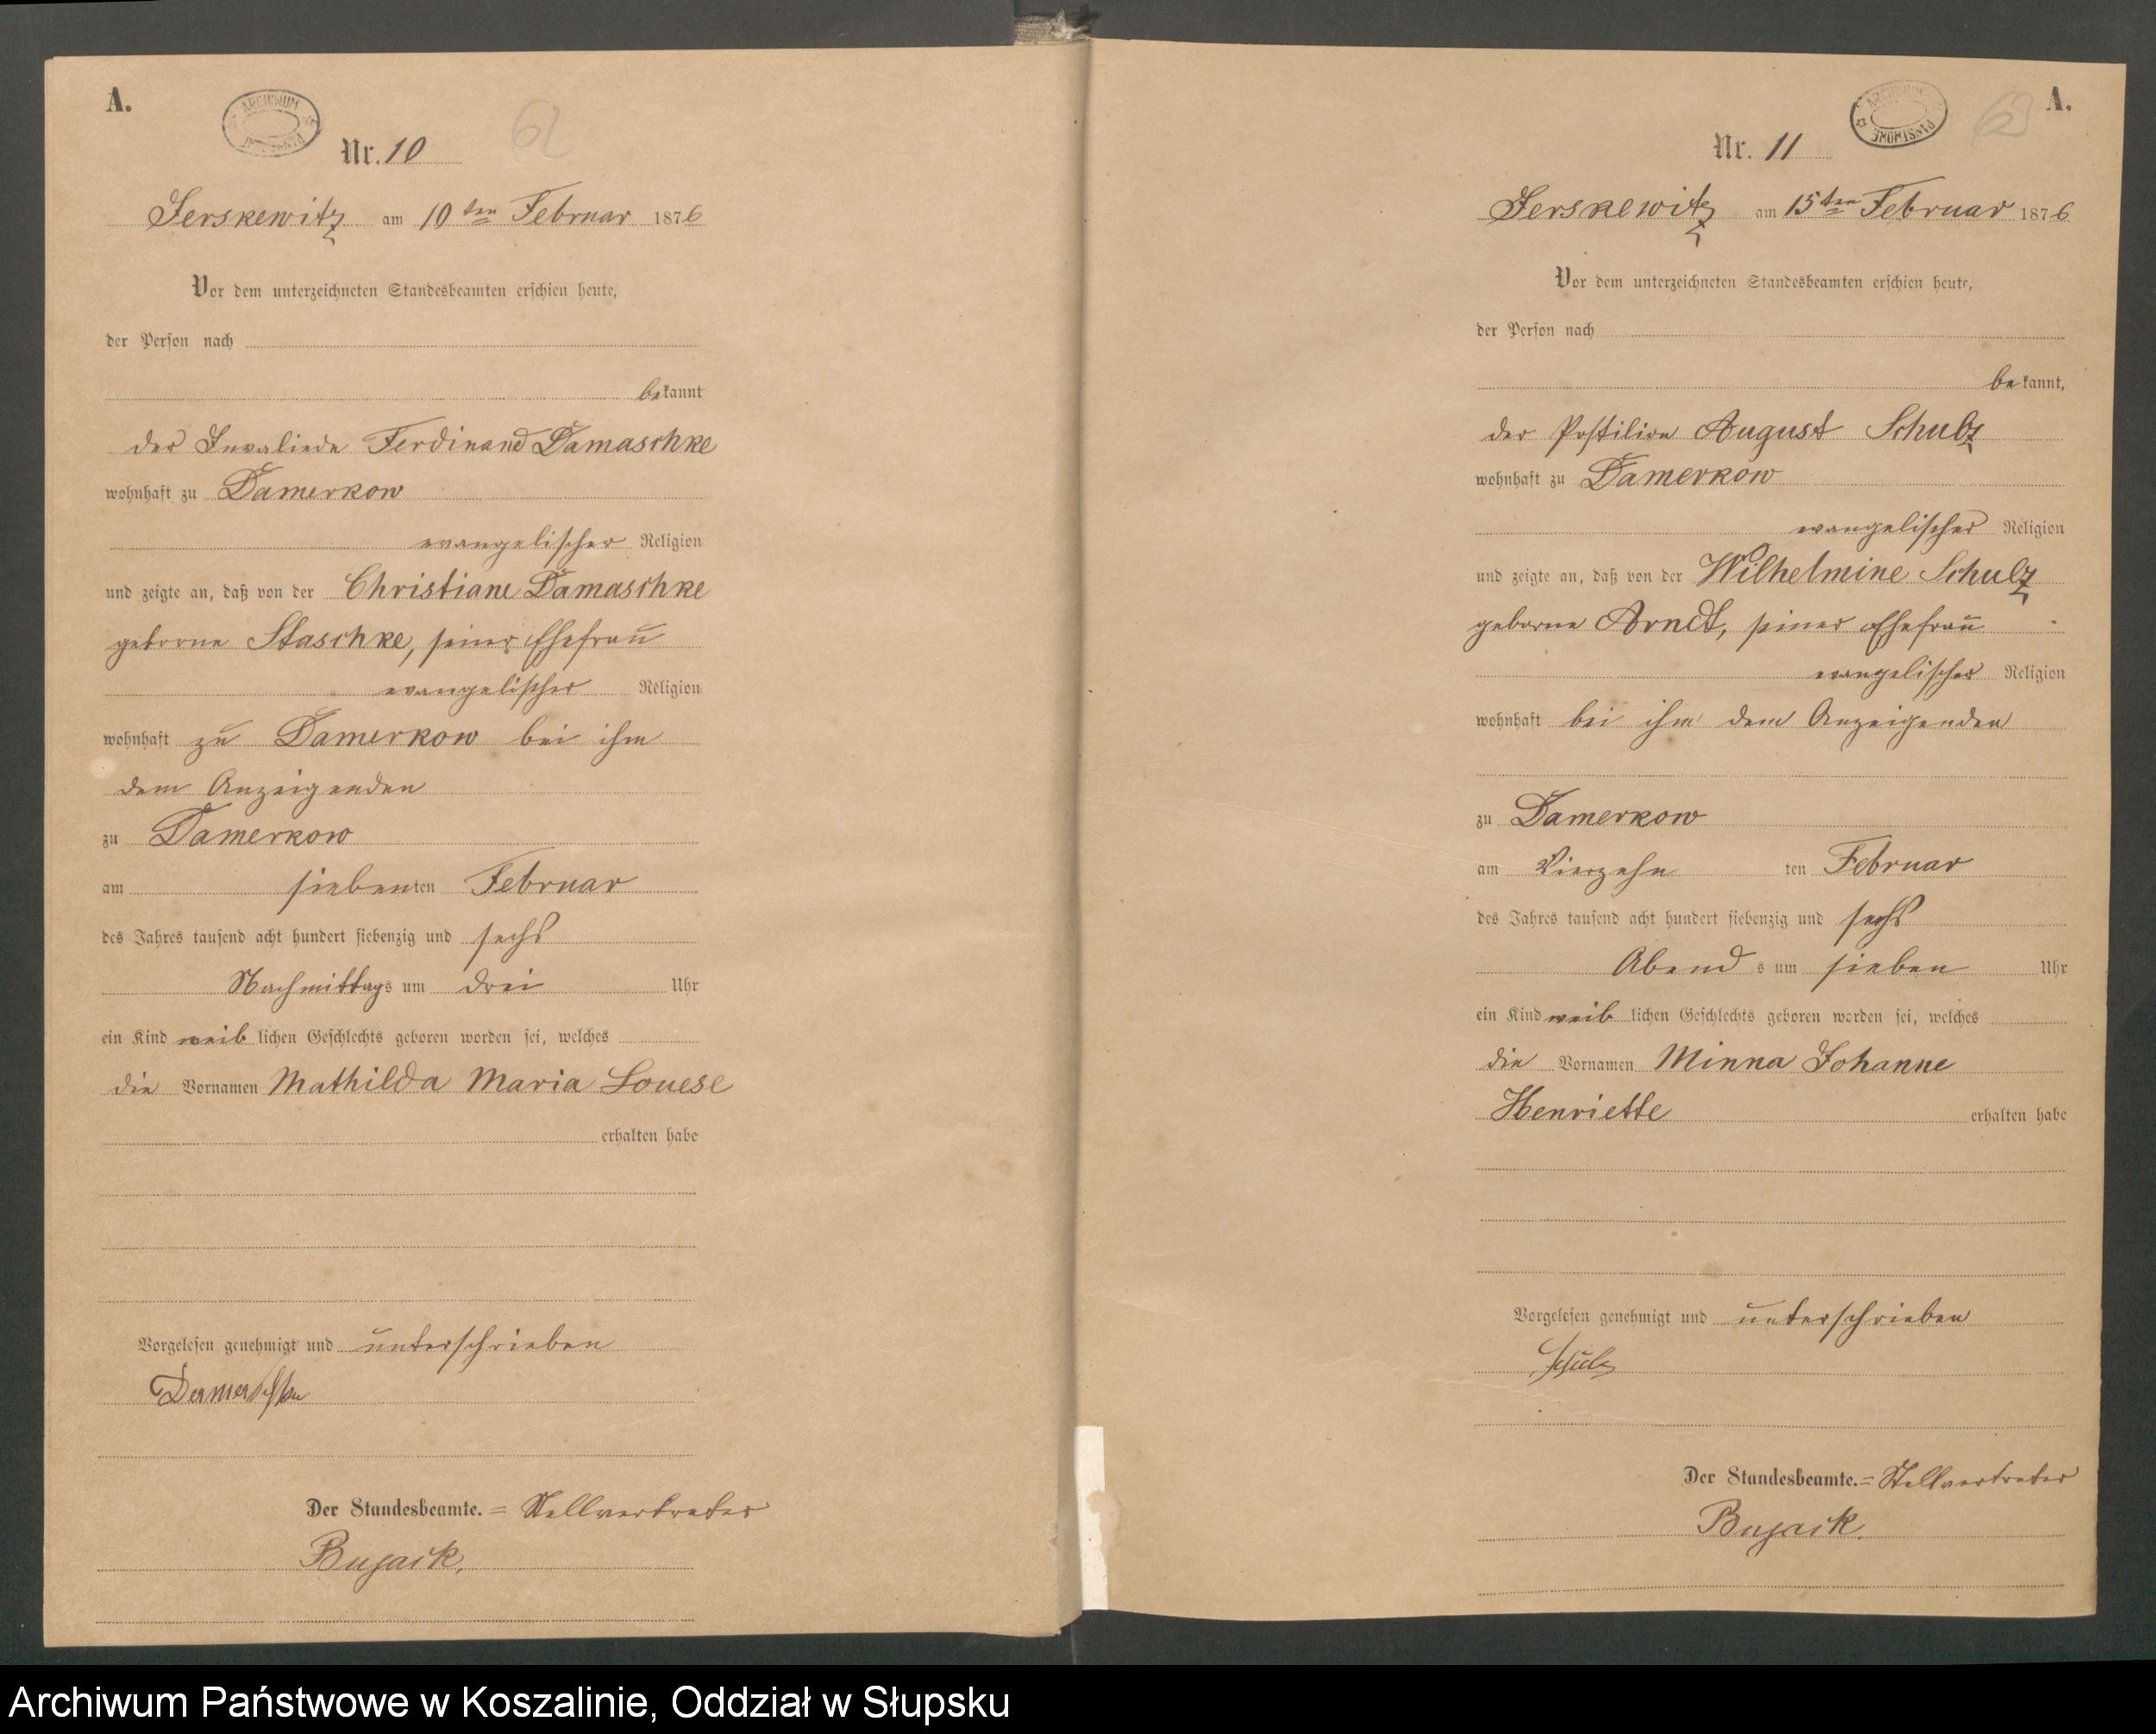 A.
ARCHIWUM
Nr. 10
62
Jerskewitz am 10ten Februar 1876
Vor dem unterzeichneten Standesbeamten erschien heute,
der Person nach
bekannt
der Invaliede Ferdinand Damaschke
wohnhaft zu Damerkow
evangelischer Religion
und zeigte an, daß von der Christiane Damaschke
geborne Staschke, seiner Ehefrau
evangelischer Religion
wohnhaft zu Damerkow bei ihm
dem Anzeigenden
zu Damerkow
am siebenten Februar
des Jahres tausend acht hundert siebenzig und sechs
Nachmittags um drei Uhr
ein Kind weiblichen Geschlechts geboren worden sei, welches
die Vornamen Mathilda Maria Louese
erhalten habe
Vorgelesen genehmigt und unterschrieben
Der Standesbeamte.= Stellvertreter
Bujack.
A.
ARCHIWUM PAŃSTWOWE
63
Nr. 11
Jerskewitz am 15ten Februar 1876
Vor dem unterzeichneten Standesbeamten erschien heute,
der Person nach
bekannt,
der Postilion August Schulz
wohnhaft zu Damerkow
evangelischer Religion
und zeigte an, daß von der Wilhelmine Schulz
geborne Arndt, seiner Ehefrau
evangelischer Religion
wohnhaft bei ihm dem Anzeigenden
zu Damerkow
am Vierzehn ten Februar
des Jahres tausend acht hundert siebenzig und sechs
Abends um sieben Uhr
ein Kind weiblichen Geschlechts geboren worden sei, welches
die Vornamen Minna Johanne
Henriette erhalten habe
Vorgelesen genehmigt und unterschrieben
Schulz
Der Standesbeamte.= Stellvertreter
Bujack.
Archiwum Państwowe w Koszalinie, Oddział w Słupsku